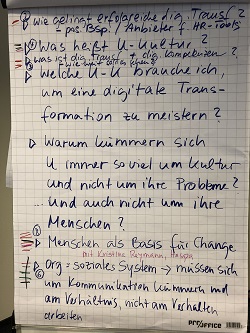 ▷ wie gelingt erfolgreiche dig. Transf.?
- pos. Bsp. / Anbieter f. HR-Tools
▷ Was heißt U-Kultur?
▷ was ist dig. Transf. + dig. Kompetenzen?
▷ Welche U-K brauche ich,
um eine digitale Trans-
formation zu meistern?
▷ Warum kümmern sich
U immer so viel um Kultur
und nicht um ihre Probleme?
... und auch nicht um ihre
Menschen?
▷ Menschen als Basis für Change
mit Kristine
▷ Org = soziales System → müssen sich
um Kommunikation kümmern und
am Verhältnis, nicht am Verhalten
arbeiten
PROOFFICE